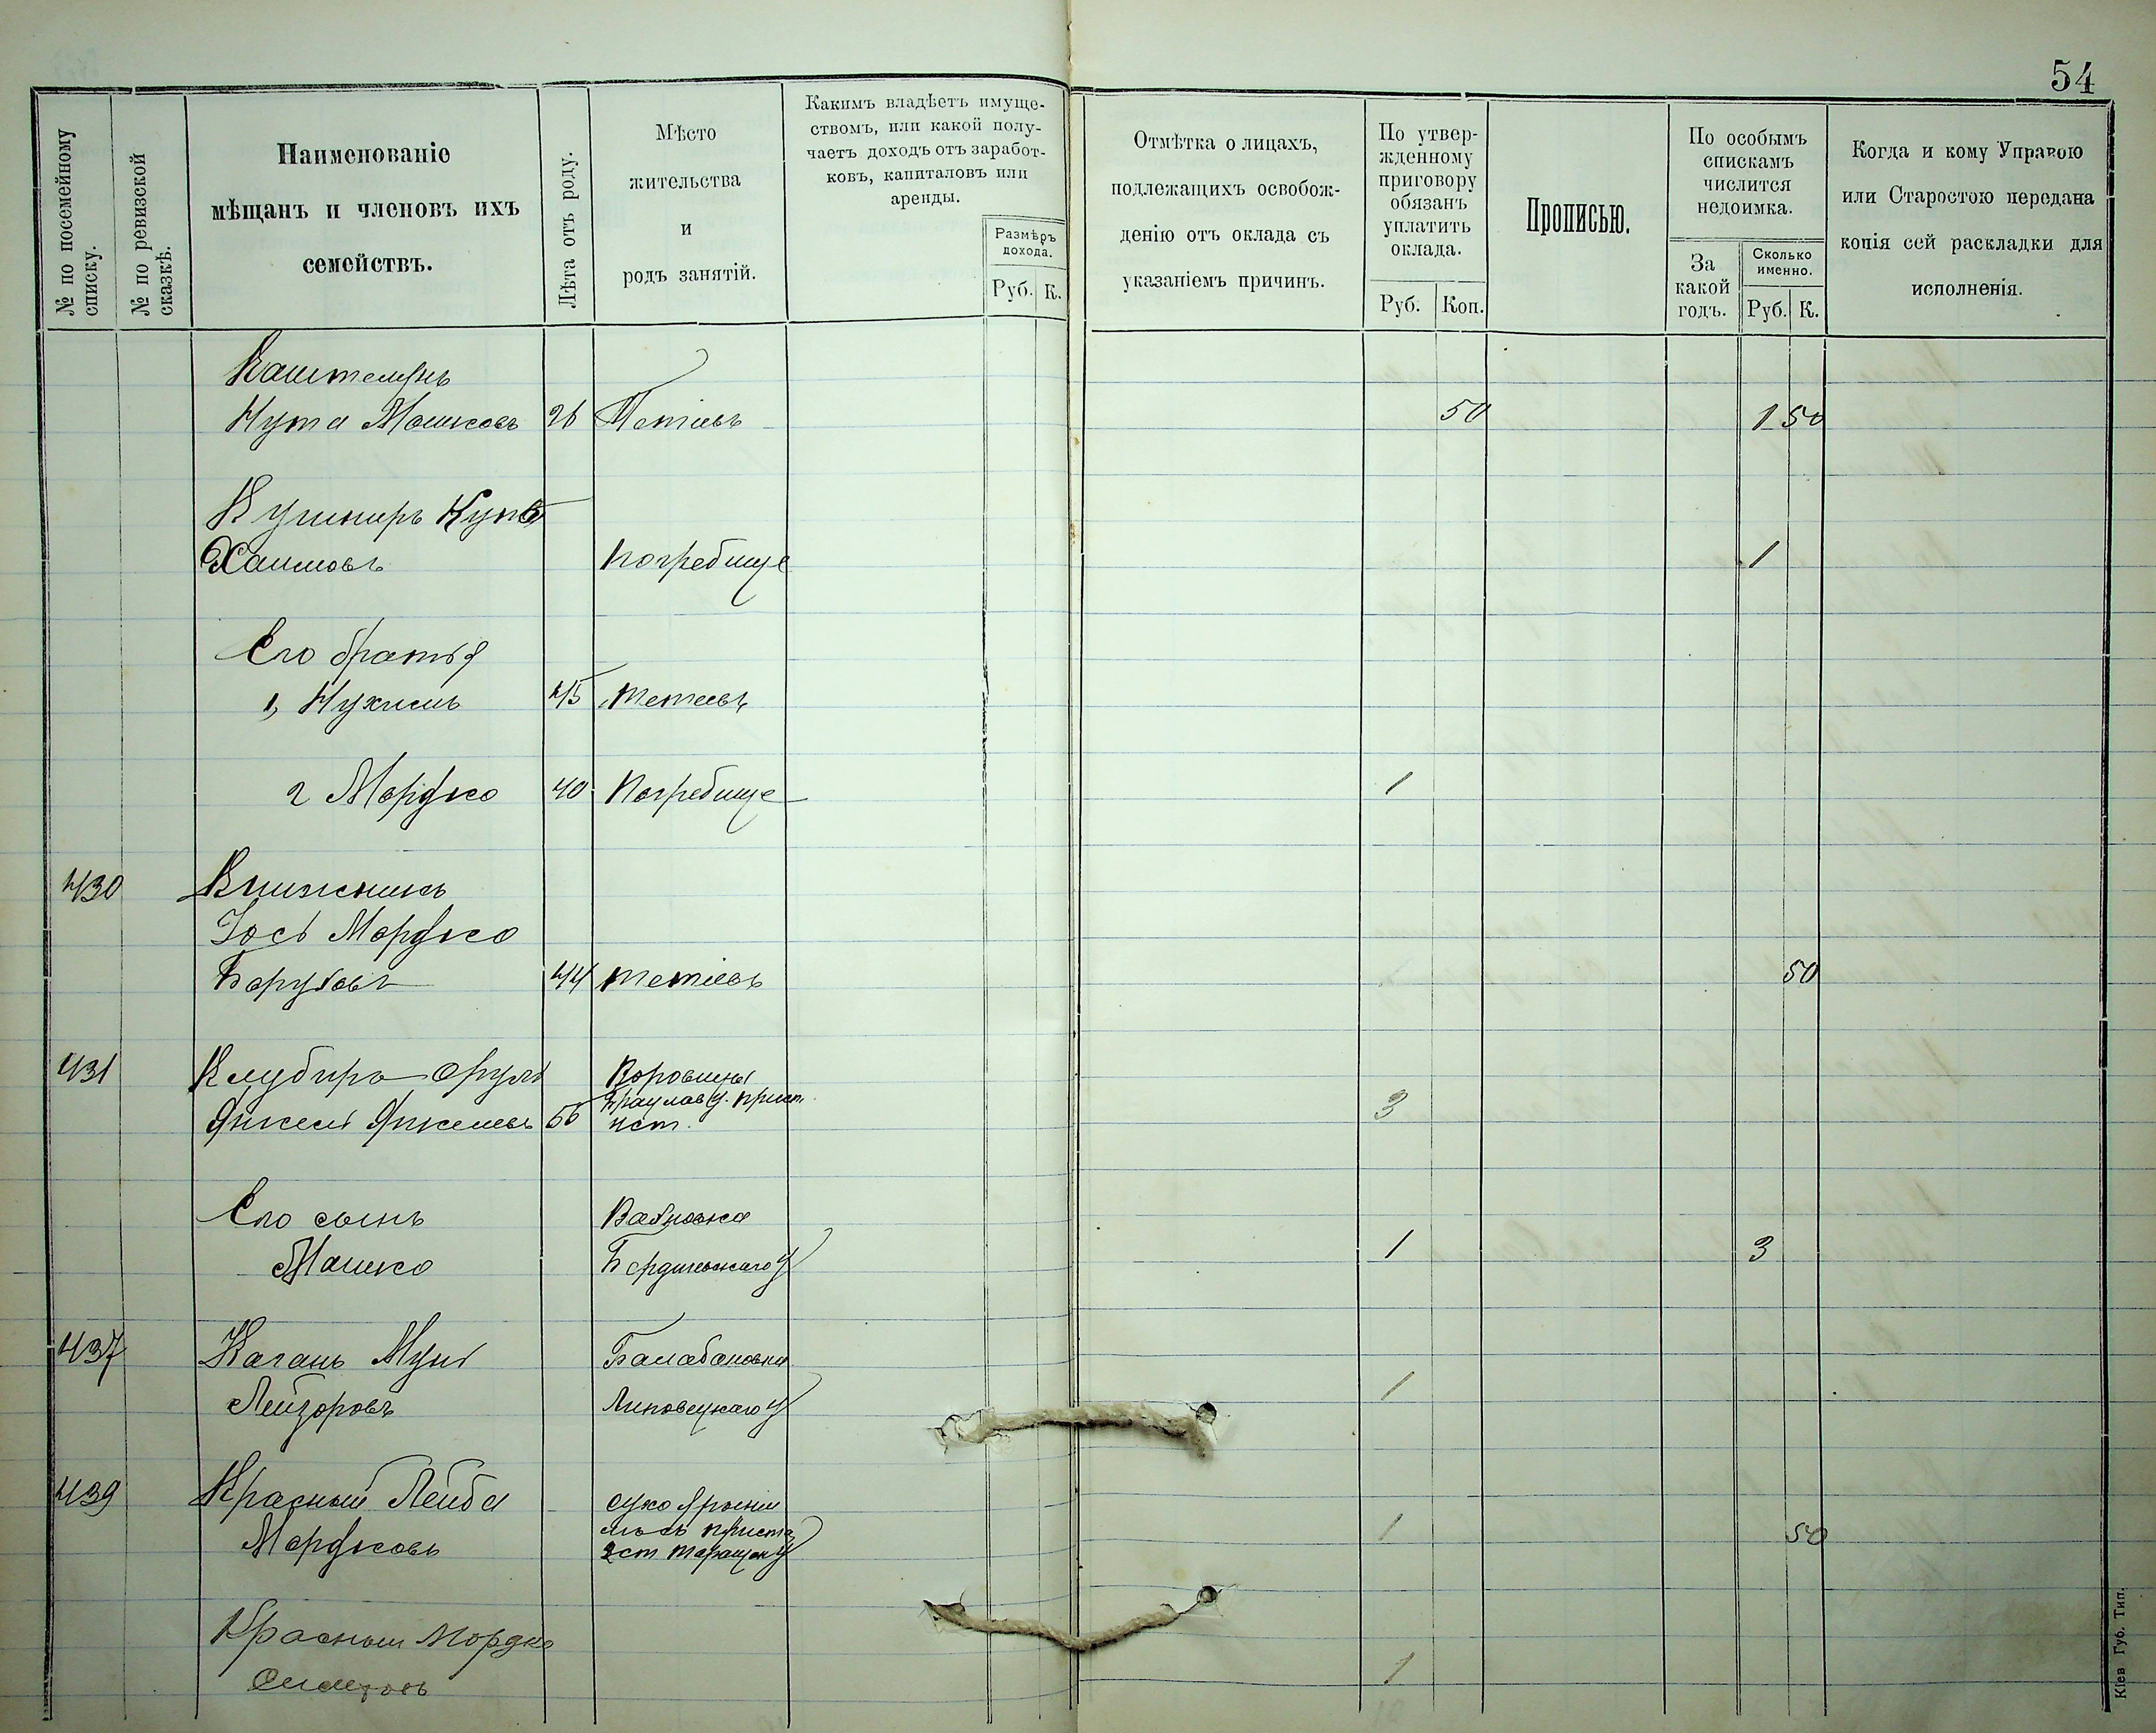 54
№ по посемейному списку.
№ по ревизской сказкѣ.
Наименованіе
мѣщанъ и членовъ ихъ
семействъ.
Лѣта отъ роду.
Мѣсто
жительства
и
родъ занятій.
Какимъ владѣетъ имуще-
ствомъ, или какой полу-
чаетъ доходъ отъ заработ-
ковъ, капиталовъ или
аренды.
Размѣръ
дохода.
Руб. К.
Отмѣтка о лицахъ,
подлежащихъ освобож-
денію отъ оклада съ
указаніемъ причинъ.
По утвер-
жденному
приговору
обязанъ
уплатить
оклада.
Руб. Коп.
Прописью.
По особымъ
спискамъ
числится
недоимка.
За
какой
годъ.
Сколько
именно.
Руб. К.
Когда и кому Управою
или Старостою передана
копія сей раскладки для
исполненія.
Нута Мошковъ 26 Тетіевъ 50 1 50
Кушниръ
Хаимовъ Погребище 1
Его братья
1, Нухимъ 45 Тетіевъ
2 Мордко 40 Погребище 1
430 Книжникъ
Іось Мордко
Боруховъ 44 Тетіевъ 50
431
Янкель Янкелевъ 3
Его сынъ
Мошко Бердичевскаго у 1 3
437 Каганъ Балабановка
Лейзоровъ Липовецкаго у 1
439 Красный Лейба
Мордковъ 2 ст Таращан у 1 50
Красный Мордко
1
Кіев Губ. Тип.